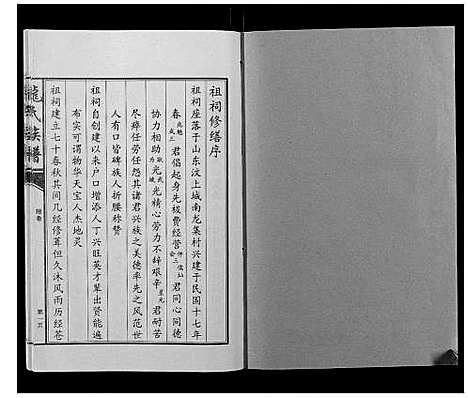 祖祠修缮序
祖祠座落于山东汶上城南龙集村兴建于民国十七年
春 君倡起身先祓费经营 君同心同德
协力相助 光 光精心劳力不辞艰辛 君耐苦
尽瘁任劳任怨其诸君兴族之美德率先之风范世
人有口皆碑族人折腰称赞
祖祠自创建以来户口增添人丁兴旺英才辈出贤能遍
布实可谓物华天宝人杰地灵
祖祠建立七十春秋其间几经修葺但久沐风雨历经苍
龙氏族谱
第一页